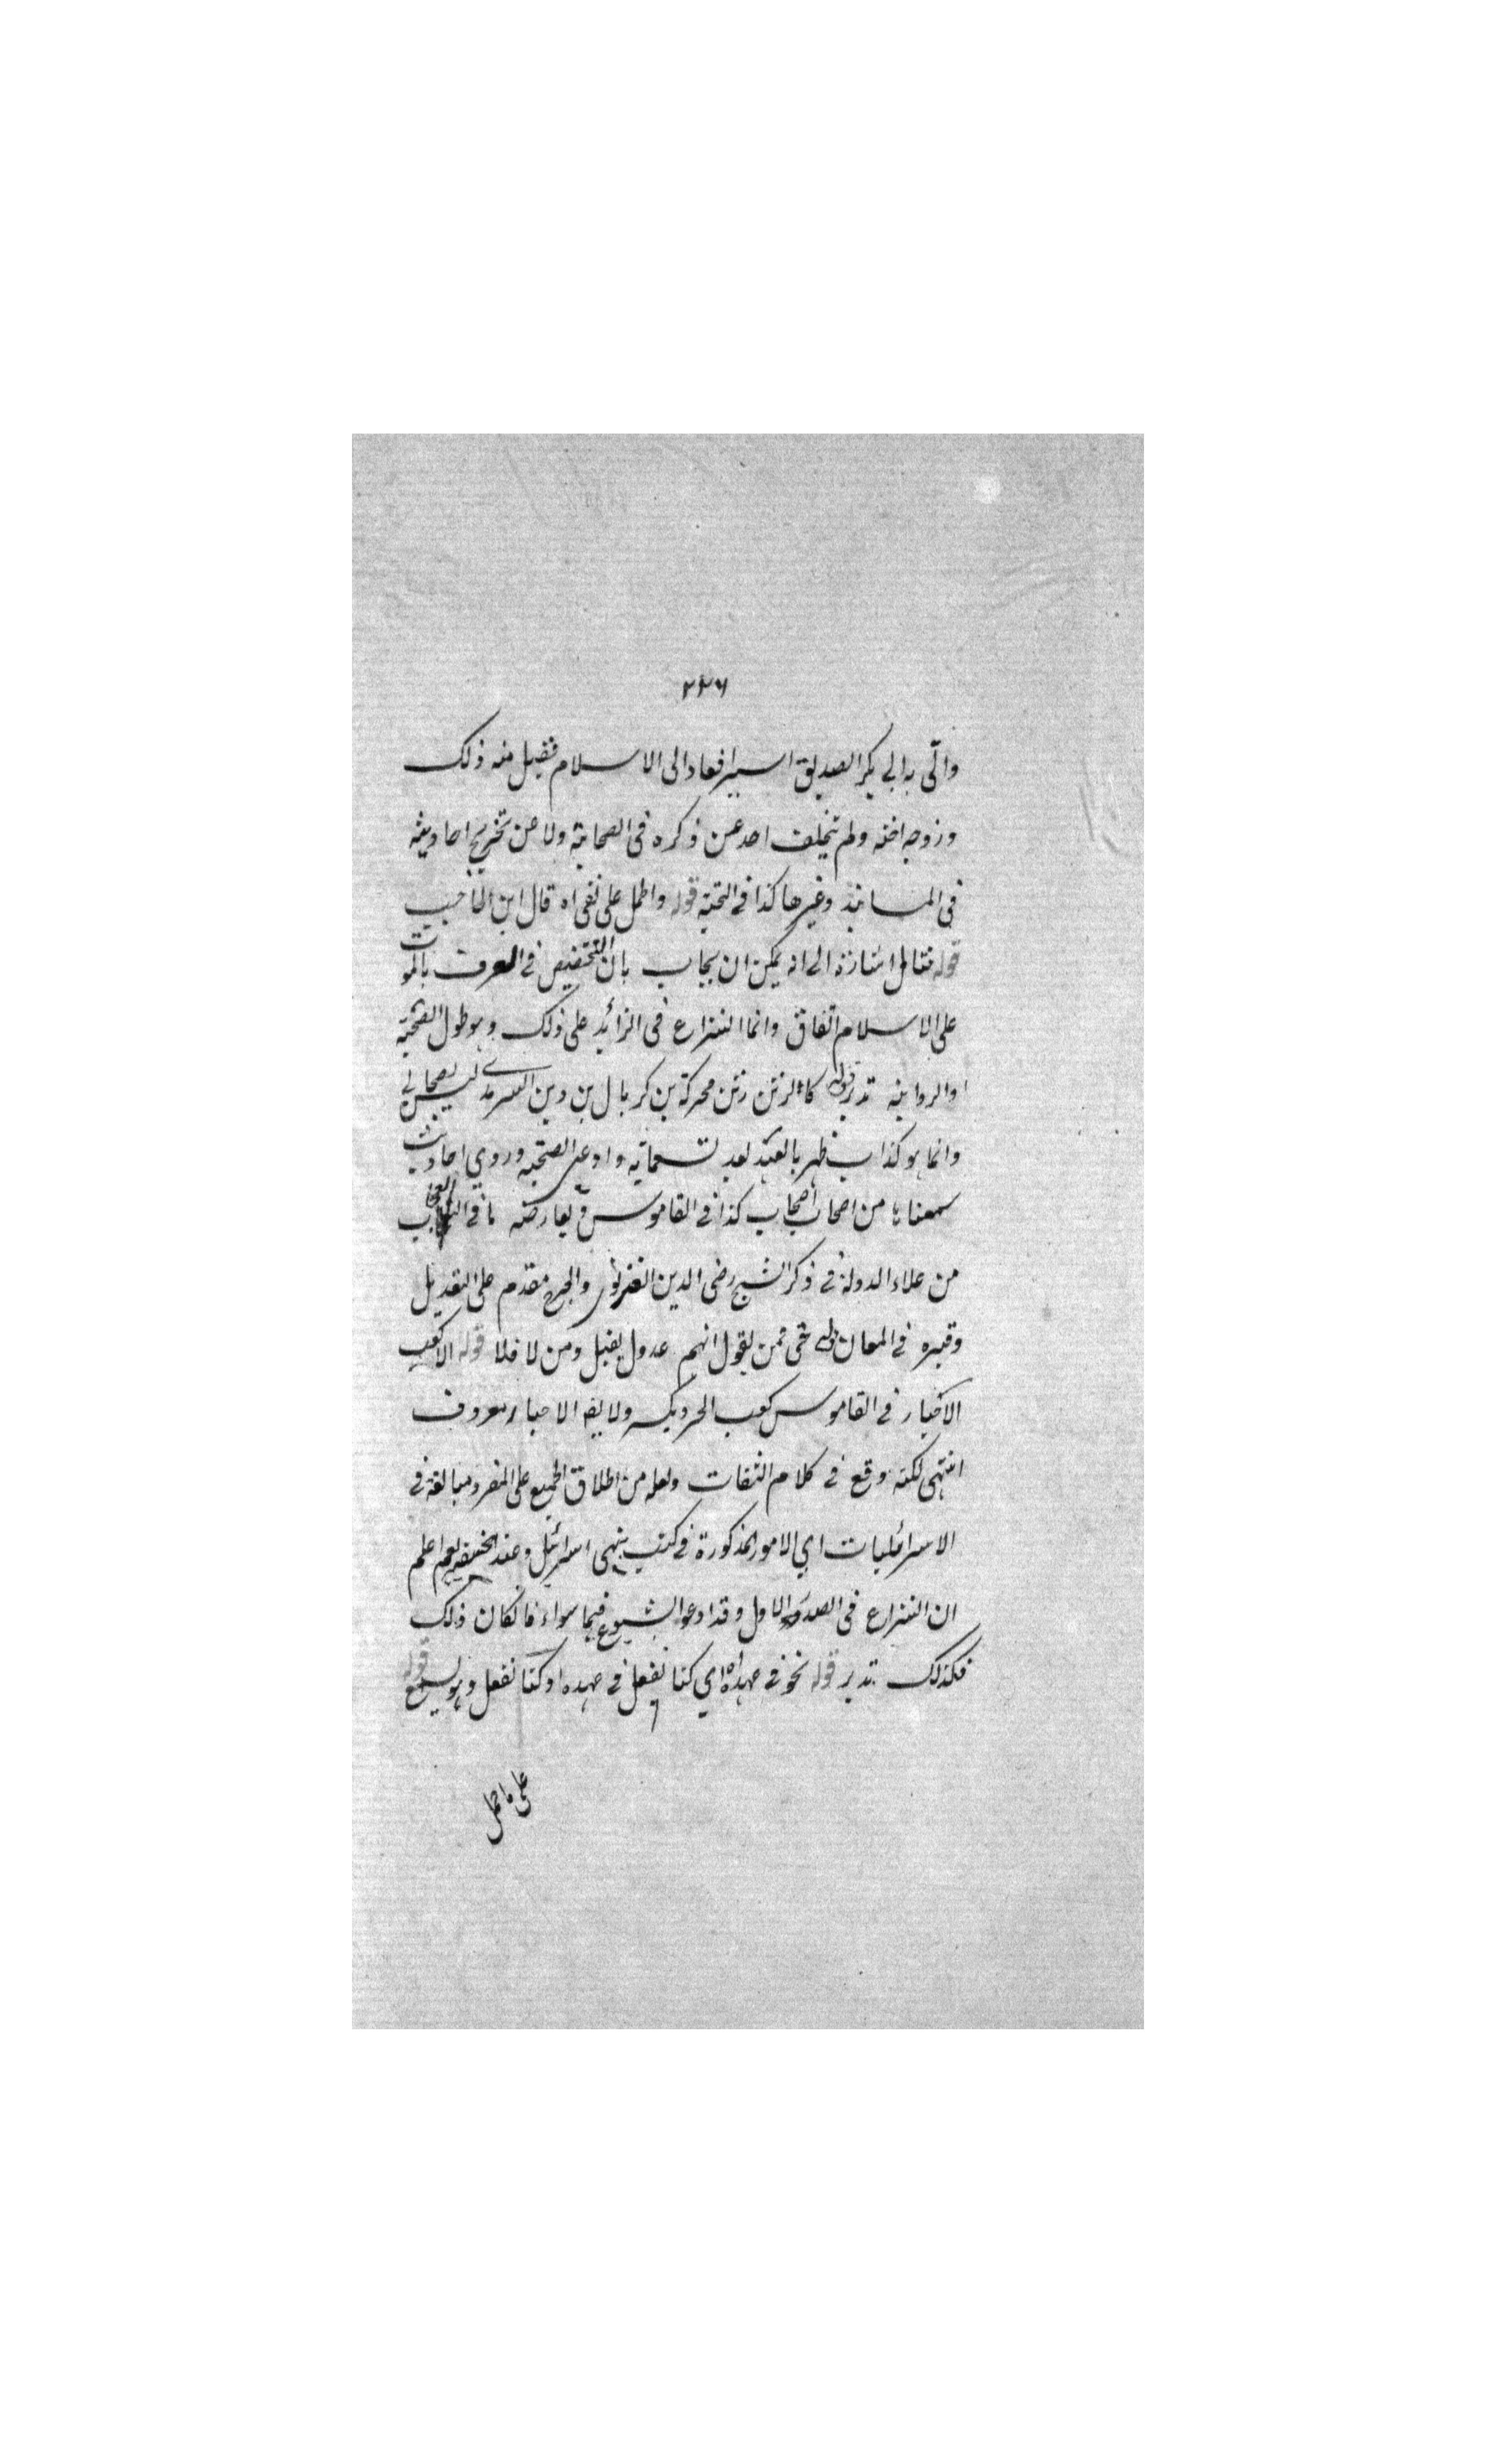 ٢٢٦
واتى به الى ابي بكر الصديق اسيرا فعاد الى الاسلام فقبل منه ذلك
وزوجه اخته ولم يتخلف احد عن ذكره في الصحابة ولا عن تخريج احاديثه
في المسانيد وغيرها كذا في النخبة قوله واطمل على نفى اه قال ابن الحاجب
قوله فتامل اشارة الى انه يمكن ان يجاب بان التخصيص في العرف بالموت
على الاسلام اتفاق وانما النزاع في الزائد على ذلك وهو طول الصحبة
والرواية تدبر قوله كالرتن رتن محركة بن كربال بن رتن السرمدي ليس بصحابي
وانما هو كذاب ظهر بالهند بعد الستمائة وادعى الصحبة وروي احاديث
سمعناها من اصحاب اصحابه كذا في القاموس ويعارضه ما في
من علاء الدولة في ذكر الشيخ رضى الدين الغزنوي والجرح مقدم على التعديل
وقبره في المعان قوله حتى فمن يقول انهم عدول يقبل ومن لا فلا قوله الا كعب
الاخبار في القاموس كعب الحبر ويكسر ولا يقه الاحبار معروف
انتهى لكنه وقع في كلام الثقات ولعله من اطلاق الجميع على المفرد مبالغة في
الاسرائليات اي الامور المذكورة في كتب بنى اسرائيل وعند الحنفية يعم اعلم
ان النزاع في الصدر الاول وقد ادعوا الشيوع فيما سواه فان كان ذلك
فكذلك تدبر قوله نحو في عهده اه اي كنا نفعل في عهده او كنا نفعل وهو يسمع قوله
على ما حمل